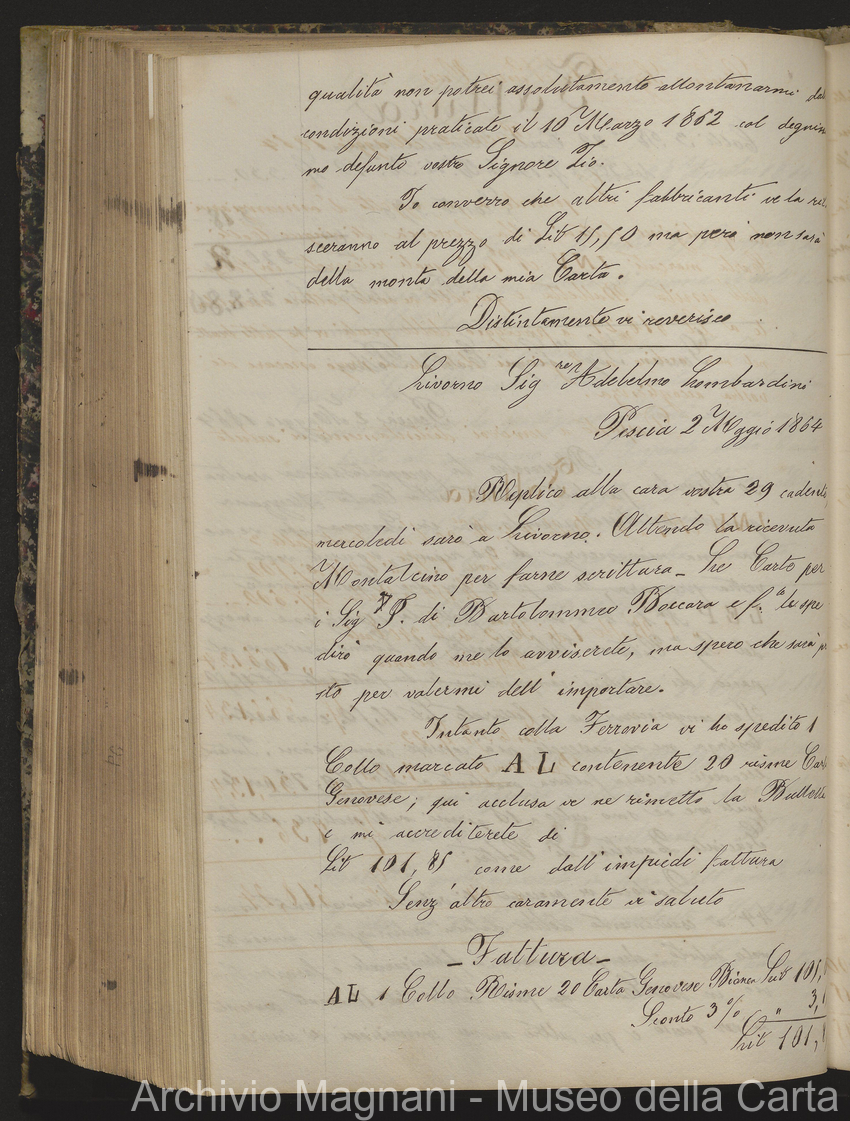 qualità non potrei assolutamente allontanarmi dalle
condizioni praticate il 10 Marzo 1862 col degnis
mo defunto vostro Signore Zio.
Io converrò che altri fabbricanti ve la ri
sceranno al prezzo di Lit 15,50 ma però non sarà
della monta della mia Carta.
Distintamente vi reverisco
Livorno Sig.re Adelelmo Lombardini
Pescia 2 Maggio 1864
Replico alla cara vostra 29 cadente,
mercoledì sarò a Livorno. Attendo la ricevuta
Montalcino per farne scrittura_ Le Carte per
i Sig. P. di Bartolommeo Boccara e f.o le spe
dirò quando me lo avviserete, ma spero che sarà pre
sto per valermi dell'importare.
Intanto colla Ferrovia vi ho spedito 1
Collo marcato AL contenente 20 risme Carta
Genovese; qui acclusa ve ne rimetto la Bulletta
e mi accrediterete di
Lit 101,85 come dall'impiedi fattura
Senz'altro caramente vi saluto
_Fattura_
AL 1 Collo Risme 20 Carta Genovese Bianca Lit 105,
Sconto 3 % " 3,1
Lit 101,
Archivio Magnani - Museo della Carta